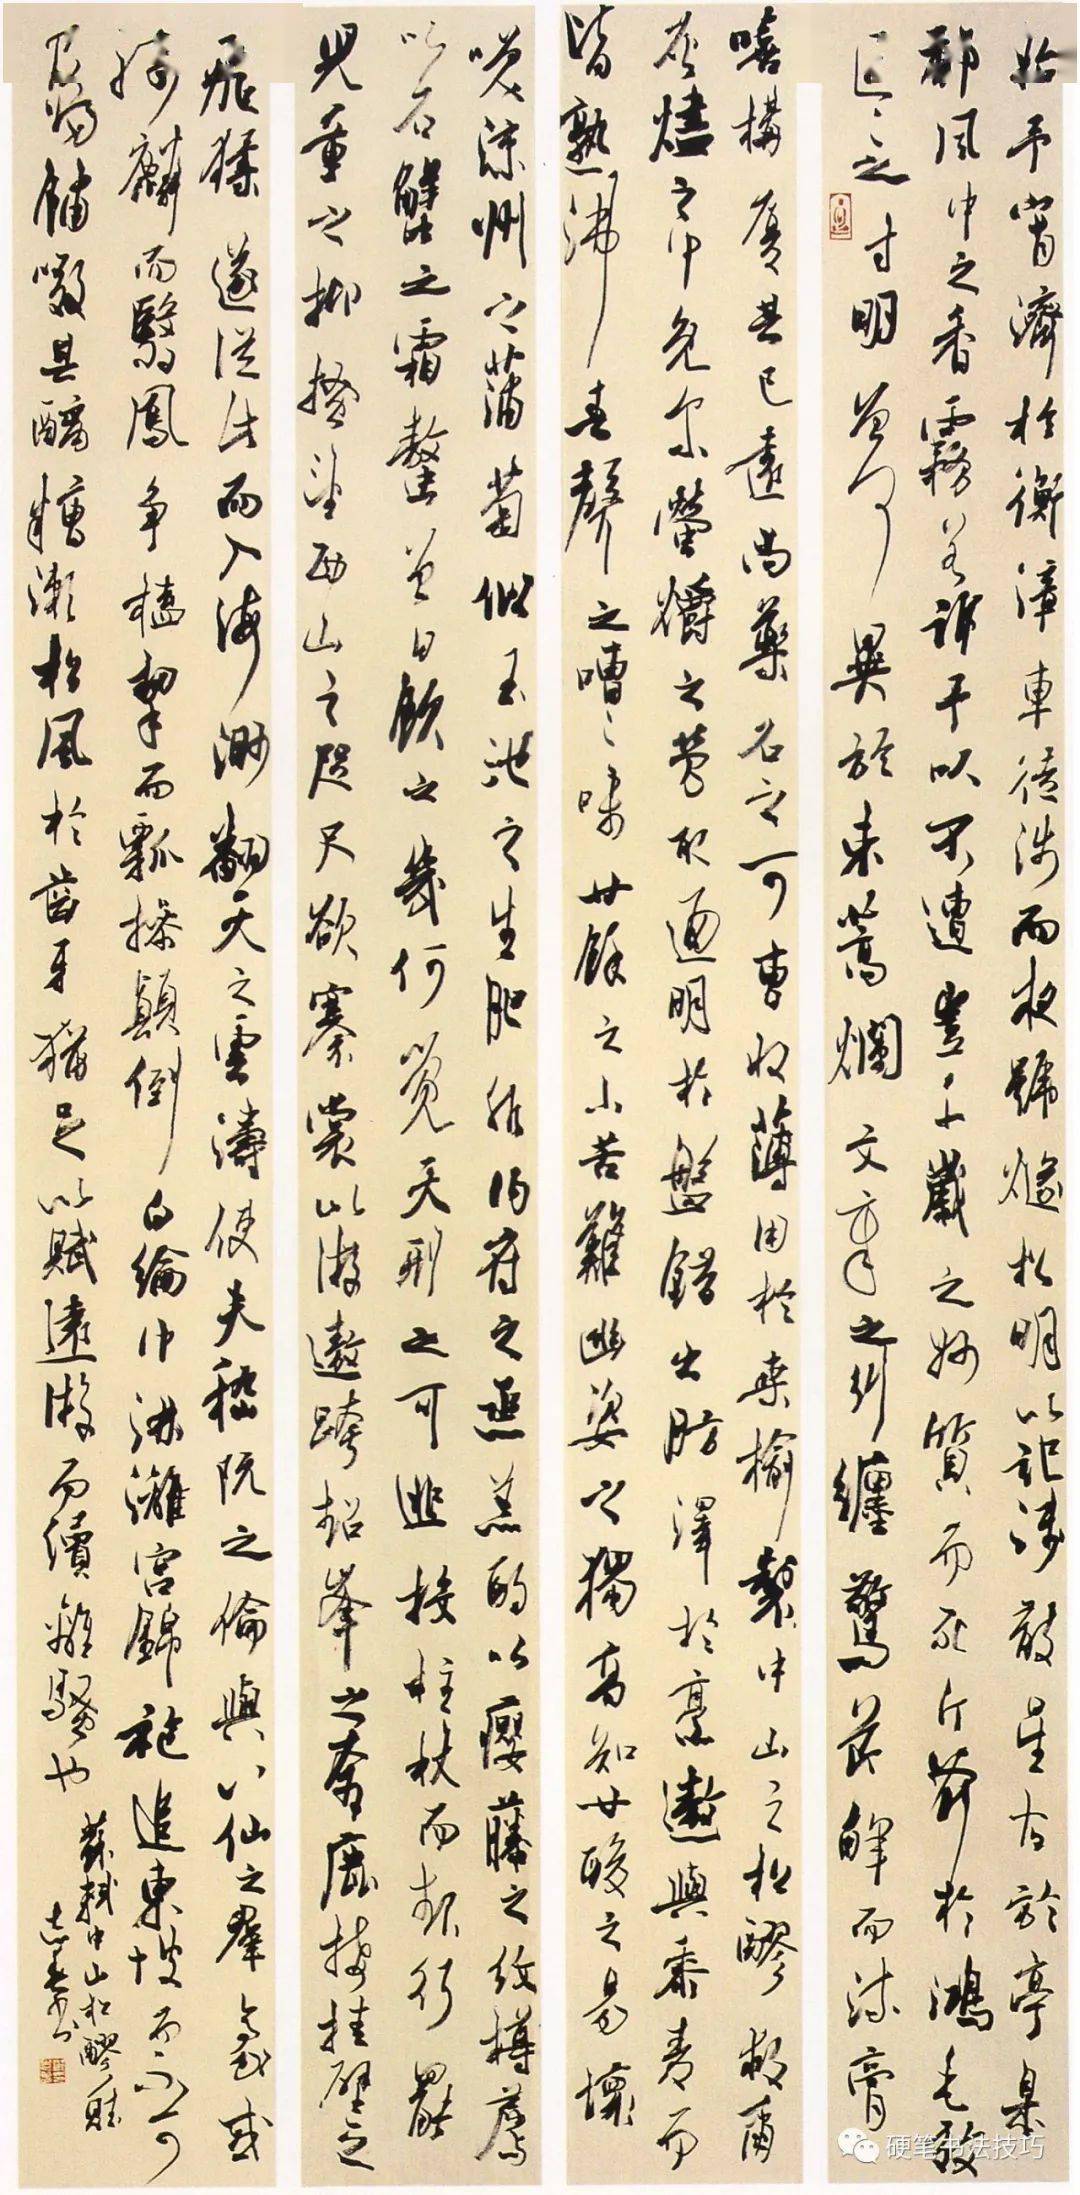 始予宵濟於衡漳車徒涉而夜號燧松明以記淺散星宿於亭皋
鬱風中之香霧若訴予以不遭豈千歲之妙質而死斤斧於鴻毛效
區〻之寸明曾何異於束蒿爛文章之糾纏驚節解而流膏
嘻構厦其已遠尚藥石之可曹收薄用於桑榆製中山之松醪救爾
灰燼之中免尔螢爝之勞取通明於盤錯出肪澤於烹熬與黍麥而
皆熟沸舂聲之嘈〻味甘餘之小苦難幽姿之獨高知甘酸之易壞
笑涼州之蒲萄似玉池之生肥非內府之蒸羔酌以癭藤之紋樽薦
以石蟹之霜螯曾日飲之幾何覺天刑之可逃投拄杖而起行罷
兒童之抑搔望西山之咫尺欲褰裳以遊遨跨超峯之奔鹿接挂壁之
飛猱遂從此而入海渺翻天之雲濤使夫嵇阮之倫與八仙之群豪或
騎麟而翳鳳爭榼挈而瓢操顛倒白綸巾淋灕宮錦袍追東坡而不可
及歸餔歠其醨糟漱松風於齒牙猶足以賦遠遊而續離騷也
蘇軾中山松醪賦
硬笔书法技巧